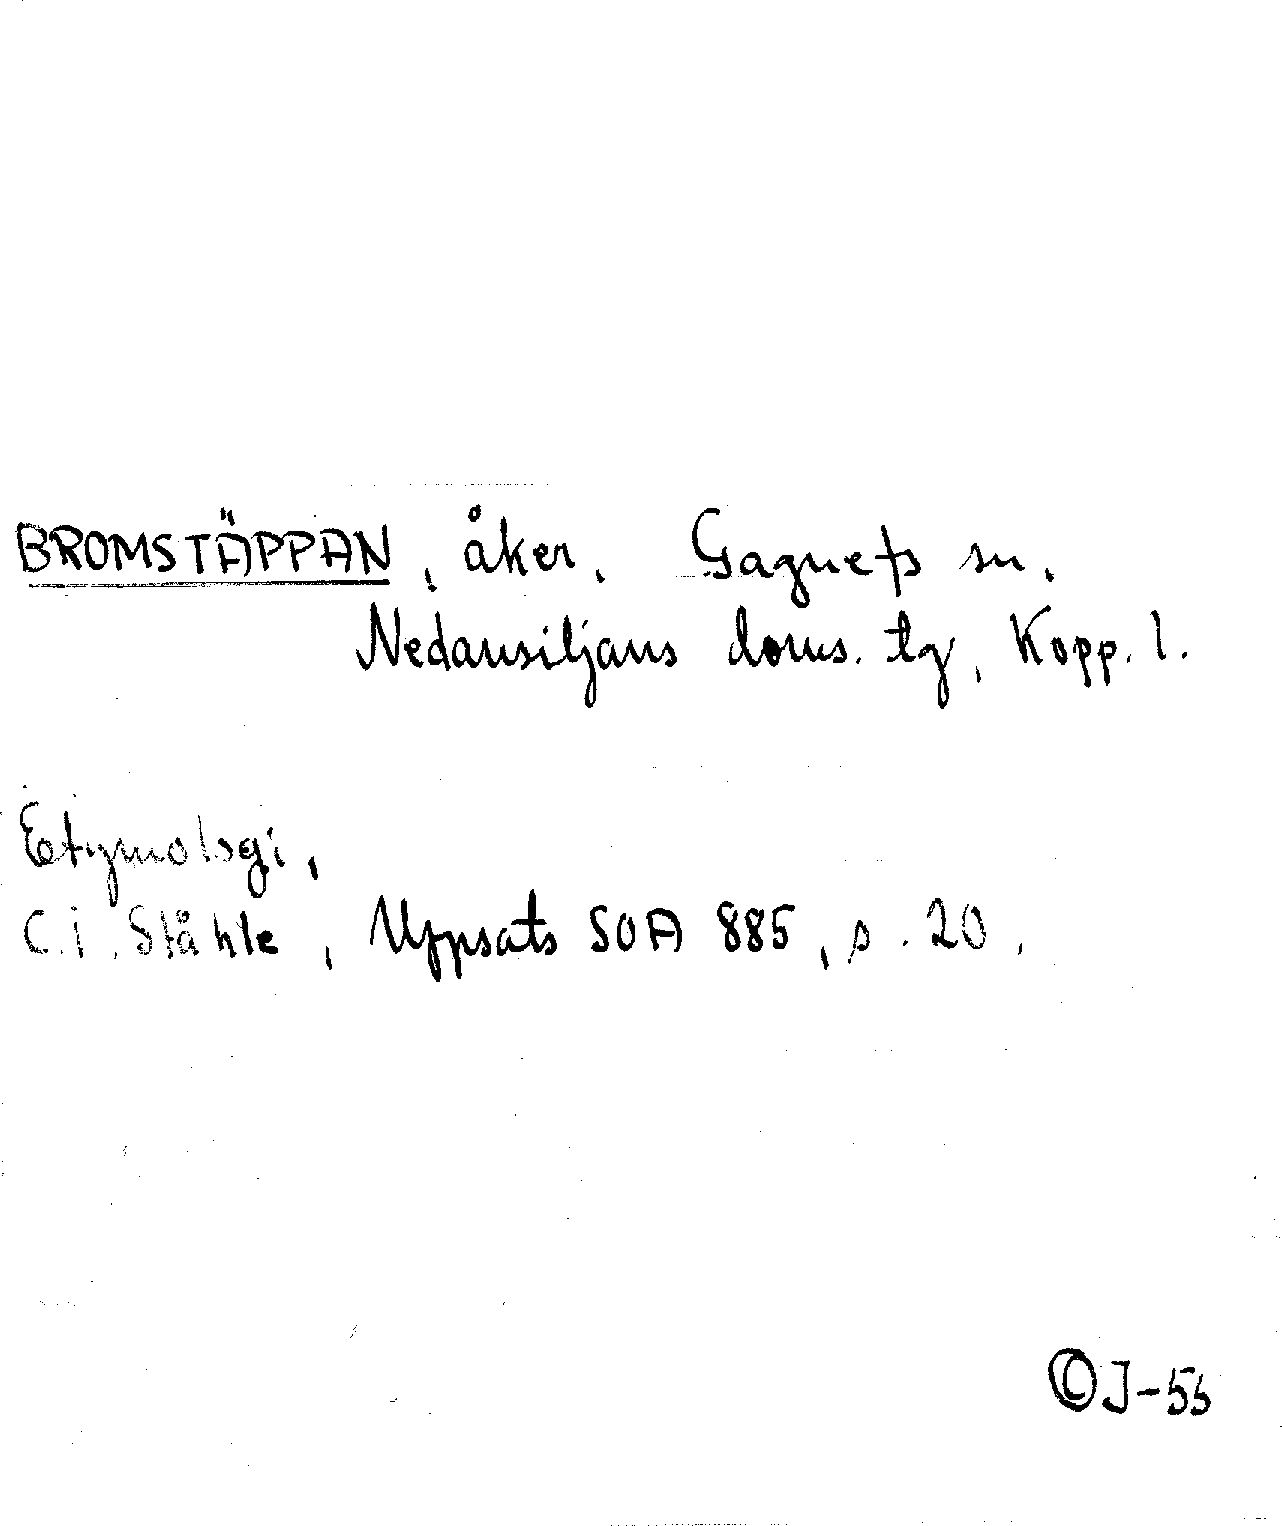 BROMSTÄPPAN, åker, Gagnefs sn,
Nedansiljans doms. tg, Kopp. l.
Etymologi,
C. I. Ståhle, Uppsats SOA 885, s. 20,
©J-55